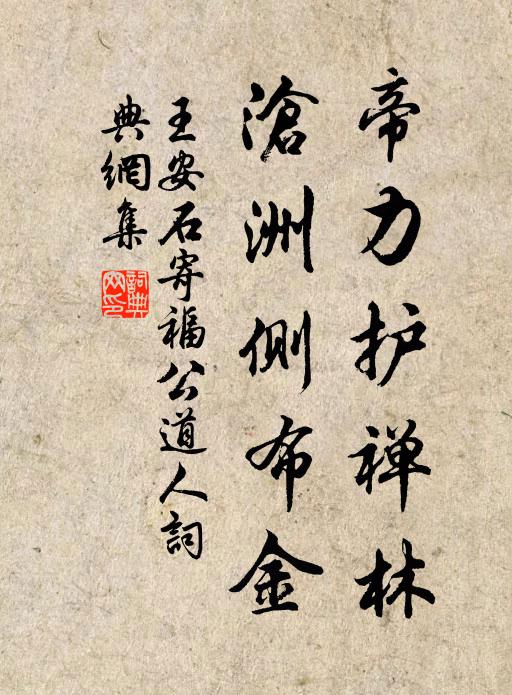 帝力护禅林
滄洲側布金
王安石寄福公道人詞
典網集
詞典网印